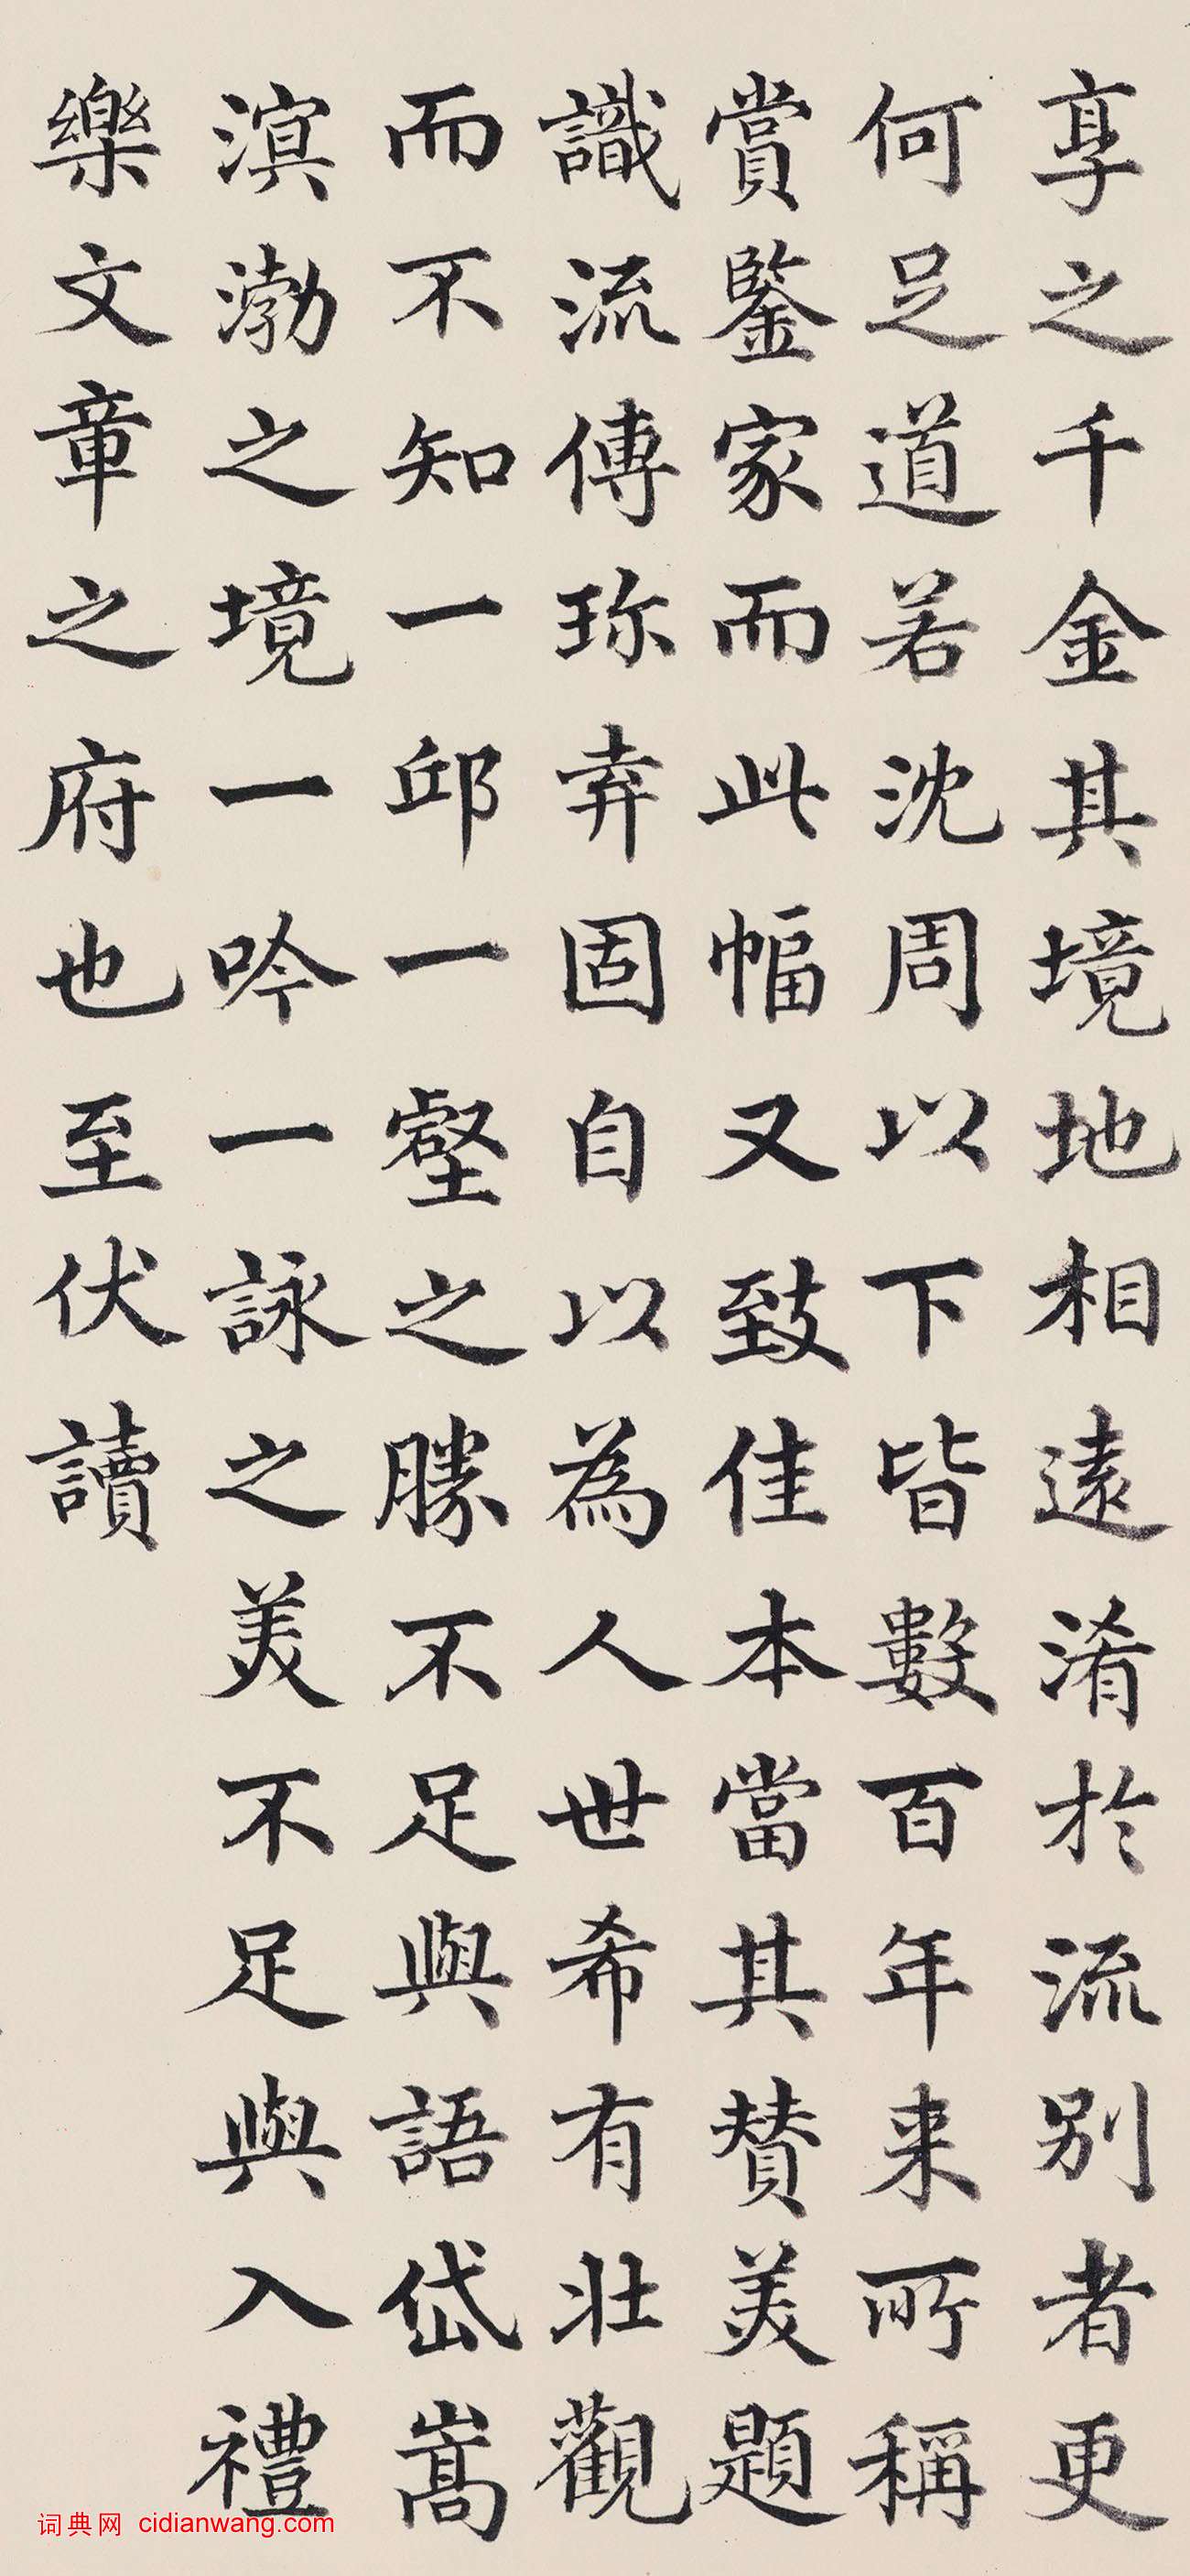 享之千金其境地相遠淆於流别者更
何足道若沈周以下皆數百年来所稱
賞鑒家而此幅又致佳本當其賛美題
識流傳珎弆固自以為人世希有壯觀
而不知一邱一壑之勝不足與語岱嵩
溟渤之境一吟一詠之美不足與入禮
樂文章之府也至伏讀
词典网 cidianwang.com